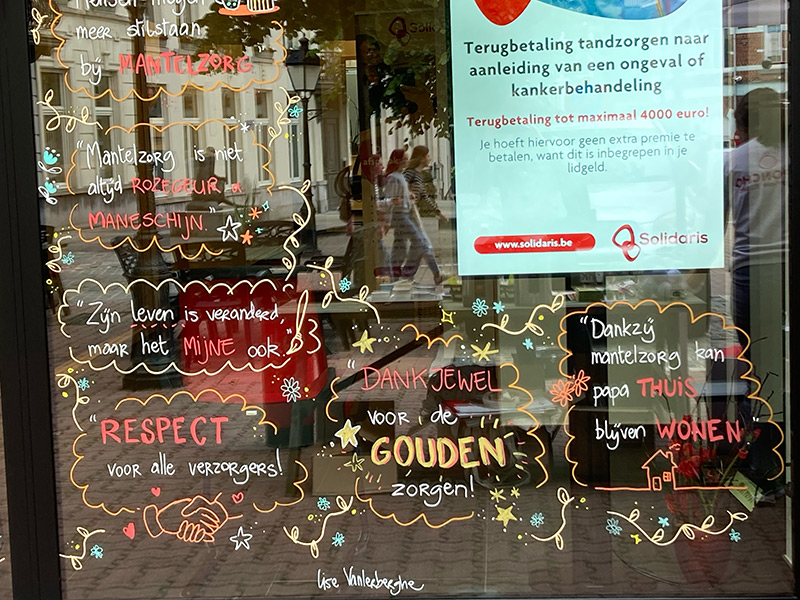 Mensen mogen
meer stilstaan
bij MANTELZORG"
"Mantelzorg is niet
altijd ROZEGEUR en
MANESCHIJN."
"Zijn leven is veranderd
maar het MIJNE ook."
"RESPECT
voor alle verzorgers!
"DANKJEWEL
voor de
GOUDEN
zorgen!
"Dankzij
mantelzorg kan
papa THUIS
blijven WONEN"
Lise Vanlerberghe
Terugbetaling tandzorgen naar
aanleiding van een ongeval of
kankerbehandeling
Terugbetaling tot maximaal 4000 euro!
Je hoeft hiervoor geen extra premie te
betalen, want dit is inbegrepen in je
lidgeld.
www.solidaris.be
Solidaris